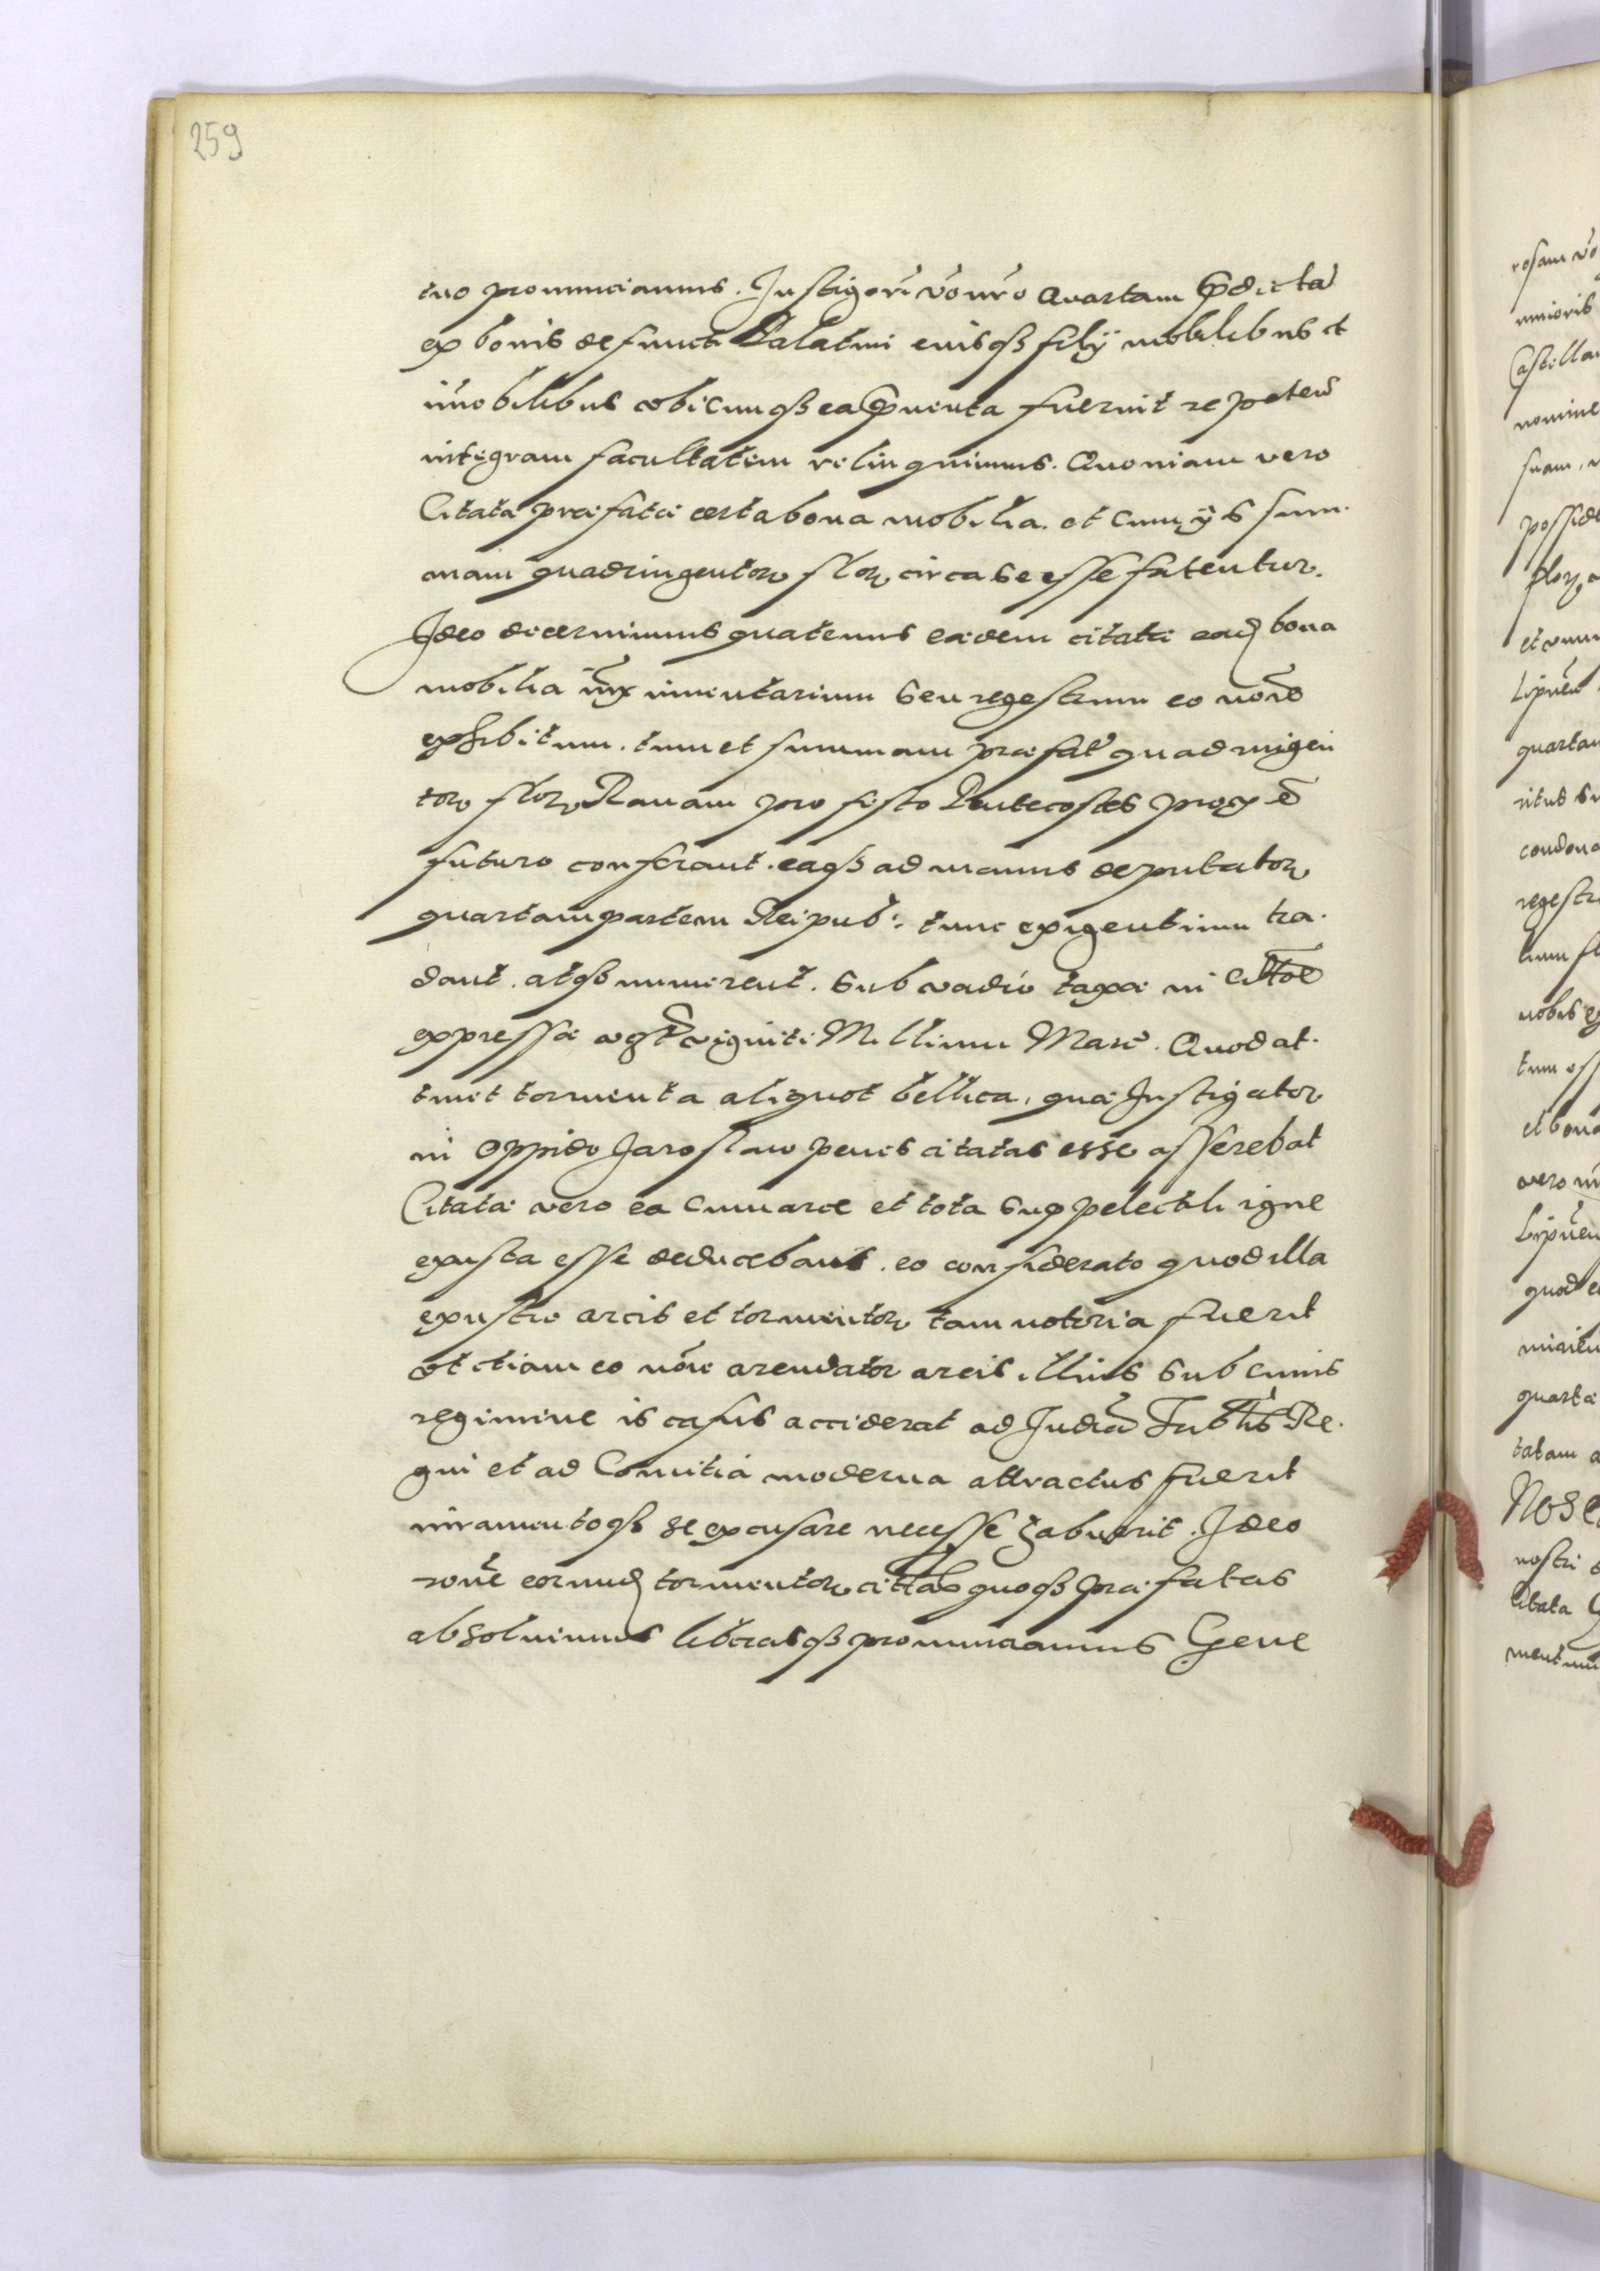 259
tuo pronunciamus. Instigori vo nro Quartam p̄dicta
ex bonis defuncti Palatini eiusqȝ filij mobilibus et
im̄obilibus vbicunqȝ ea inuenta fuerint repeten̄
integram facultatem relinquimus. Quoniam vero
Citatæ præfatæ certa bona mobilia. et cum ijs sum.
mam quadringentor flor circa se esse fatentur.
Ideo decernimus quatenus eædem citatæ eadȝ bona
mobilia iux inuentarium seu regestrum eo noīe
exhibitum. tum et summam præfat quadringen
tor flor Rauam pro festo Pentecostes prox ē
futuro conferant. eaqȝ ad manus deputator
quartam partem Reipub: tunc exigentium tra.
dant. atqȝ numerent. sub vadio taxæ in Cittōe
expressæ vzt viginti Millium Marc. Quod at.
tinet tormenta aliquot bellica, quæ Instigator
in Oppido Jaroslaw penes citatas esse asserebat
Citatæ vero ea cum arce et tota suppelectili igne
exusta esse deducebant. eo considerato quod illa
exustio arcis et tormentor tam notoria fuerit
vt etiam eo noīe arendator arcis illius sub cuius
regimine is casus acciderat ad Judiā Tribtlis Re.
gni et ad Comitia moderna attractus fuerit
iuramentoqȝ se excusare necesse habuerit. Ideo
rōne eorundȝ tormentor cittas quoqȝ præfatas
absoluimus liberasqȝ pronunciamus Gene
rosam vo
minoris
Castellan
nomine
suam,
posside
flor,
et
quartam
ritus su
condona
regestr
lium fl
nobis
tum ess
et bona
vero
quod e
quartæ
tatam a
Nos e
nostri
Citata
mentum